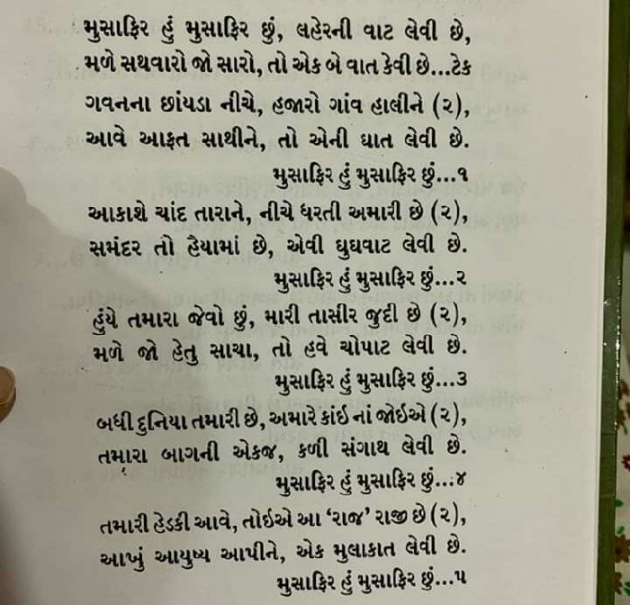 મુસાફિર હું મુસાફિર છું, લહેરની વાટ લેવી છે,
મળે સથવારો જો સારો, તો એક બે વાત કેવી છે...ટેક
ગવનના છાંયડા નીચે, હજારો ગાંવ હાલીને (૨),
આવે આફત સાથીને, તો એની ઘાત લેવી છે.
મુસાફિર હું મુસાફિર છું...૧
આકાશે ચાંદ તારાને, નીચે ધરતી અમારી છે (૨),
સમંદર તો હૈયામાં છે, એવી ઘુઘવાટ લેવી છે.
મુસાફિર હું મુસાફિર છું...૨
હુંયે તમારા જેવો છું, મારી તાસીર જુદી છે (૨),
મળે જો હેતુ સાચા, તો હવે ચોપાટ લેવી છે.
મુસાફિર હું મુસાફિર છું...૩
બધી દુનિયા તમારી છે, અમારે કાંઇ નાં જોઇએ (૨),
તમારા બાગની એકજ, કળી સંગાથ લેવી છે.
મુસાફિર હું મુસાફિર છું...૪
તમારી હેડકી આવે, તોઇએ આ ‘રાજ’ રાજી છે (૨),
આખું આયુષ્ય આપીને, એક મુલાકાત લેવી છે.
મુસાફિર હું મુસાફિર છું...૫